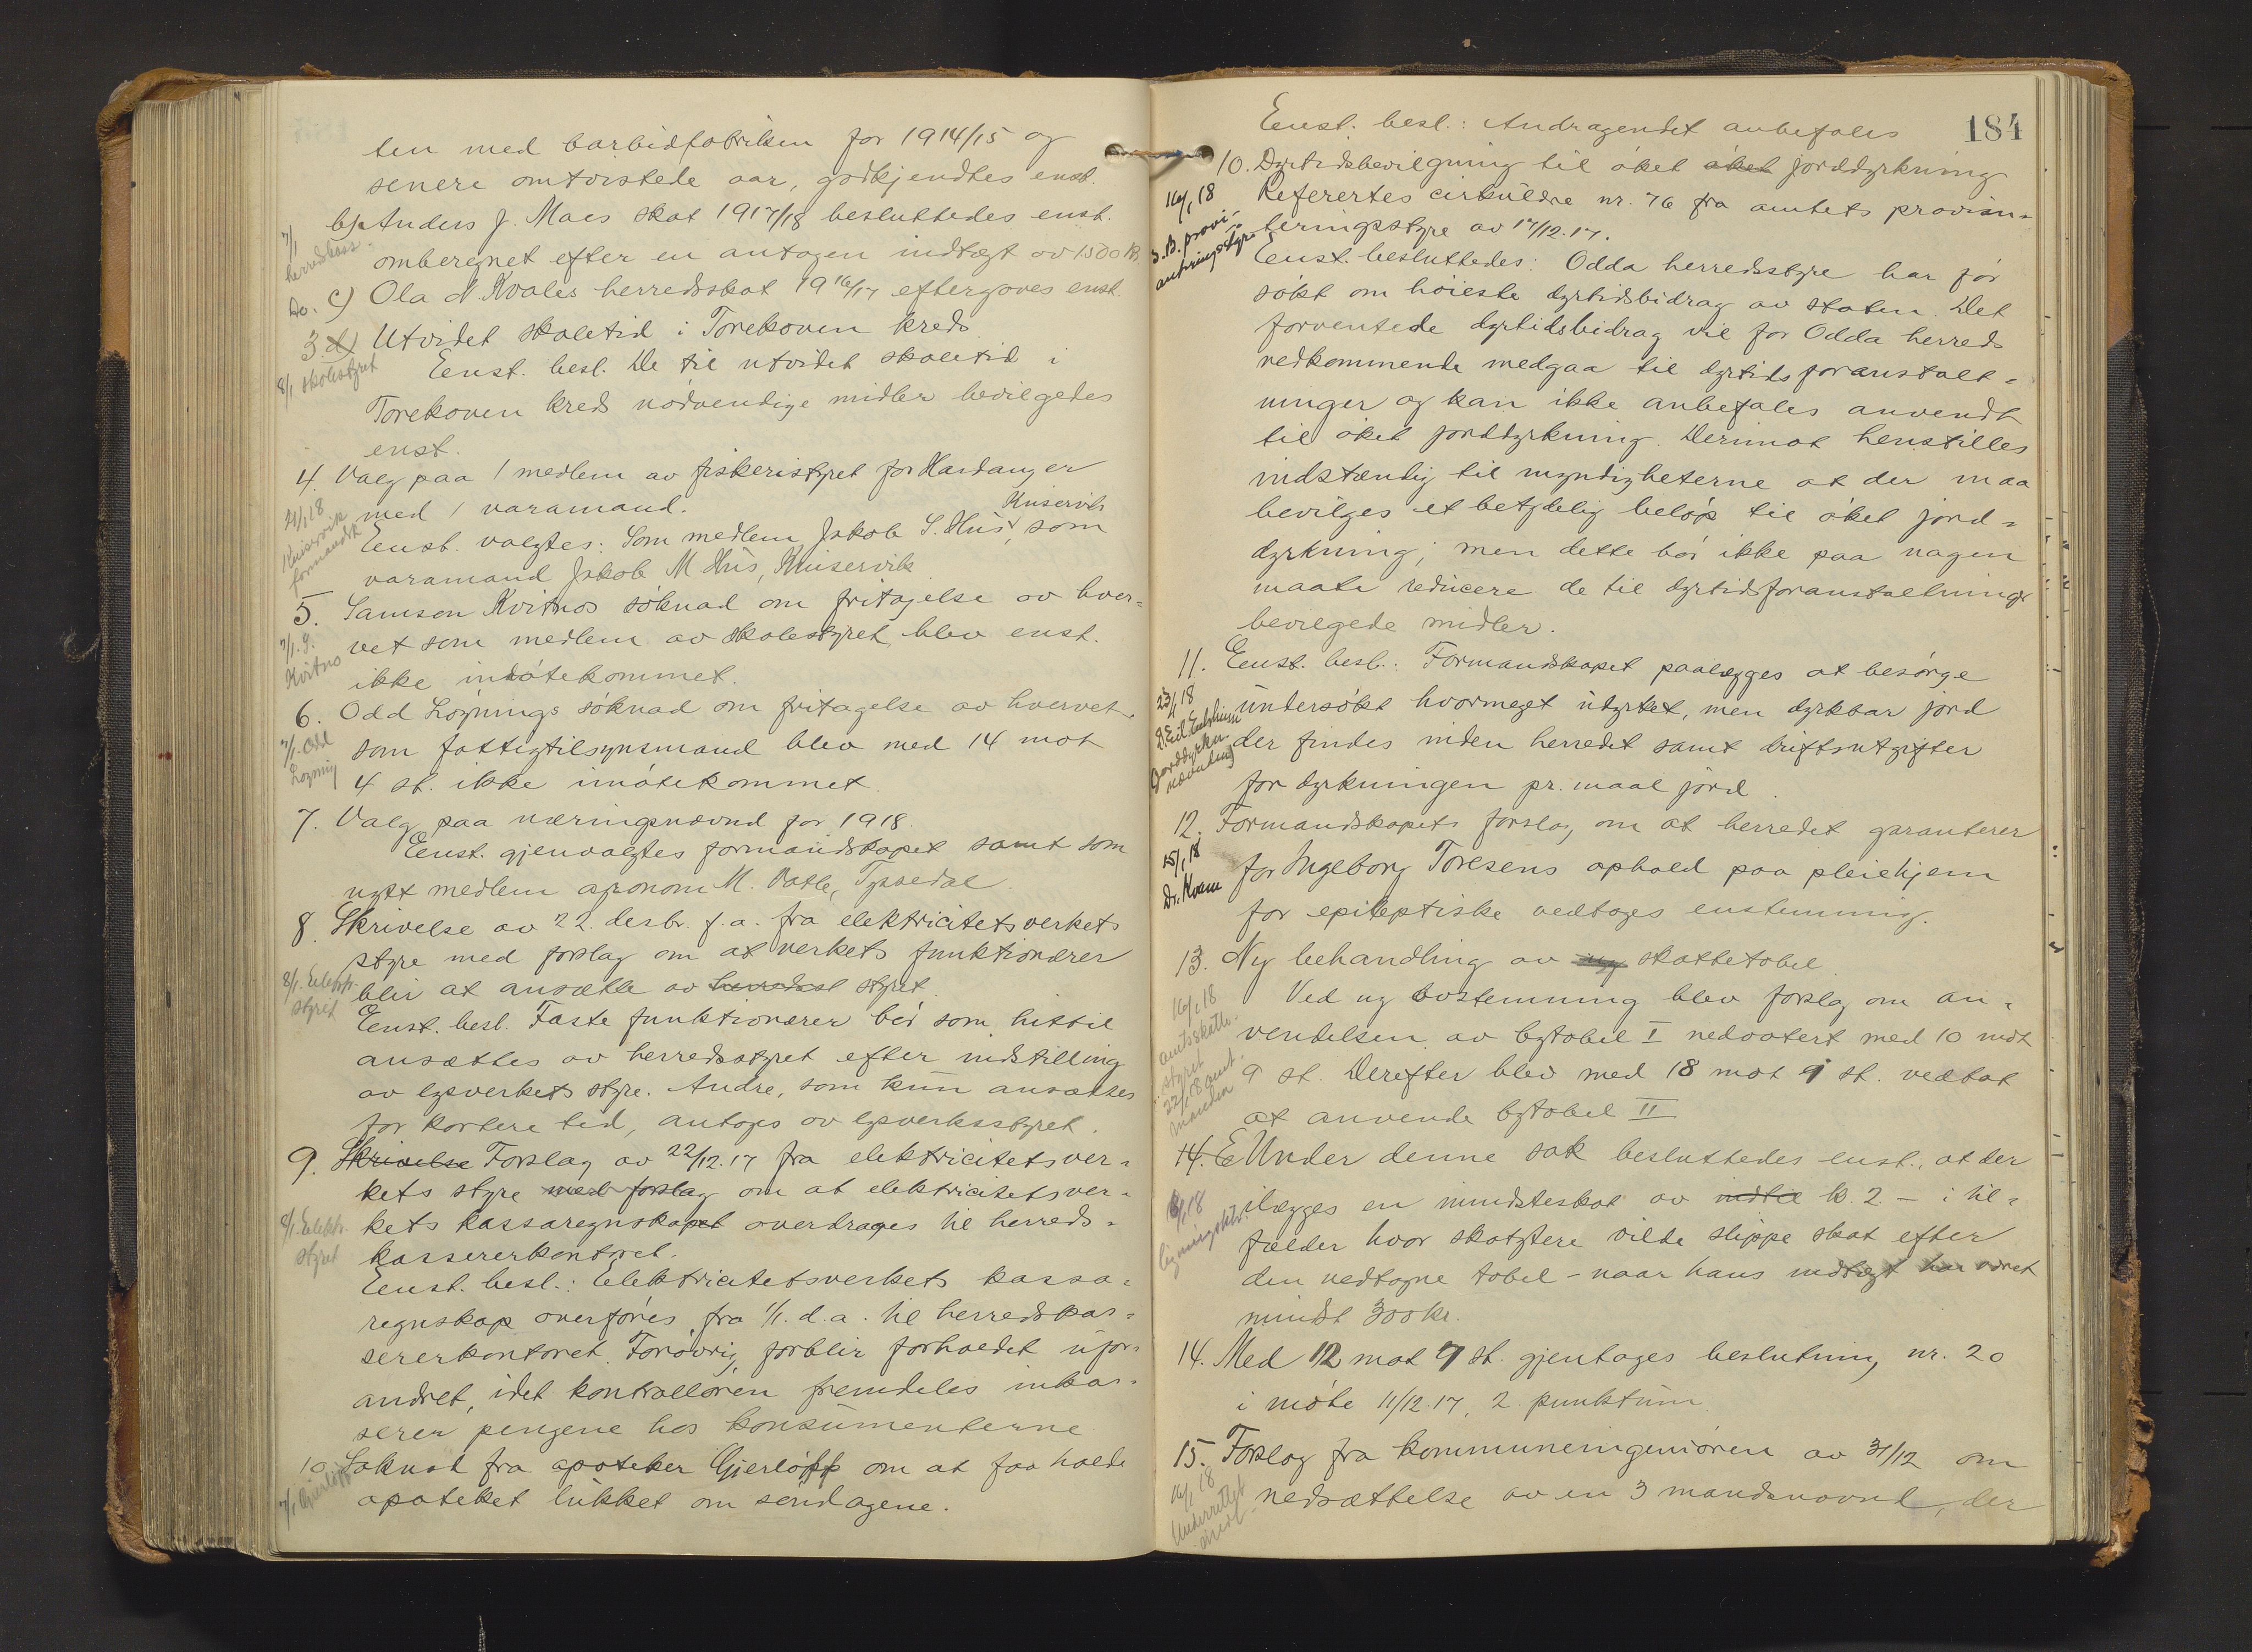 ten med karbidfabriken for 1914/15 og
senere omtvistede aar, godkjendtes enst.
7/1 herredskass. b) Anders J. Maes skat 1917/18 besluttedes enst.
omberegnet efter en antagen indtægt av 1500 kr.
Do. c) Ola N. Kvales herredsskat 1916/17 eftergaves enst.
3 d) Utvidet skoletid i Torekoven kreds
8/1 skolestyret Enst. besl. De til utvidet skoletid i
Torekoven kreds nödvendige midler bevilgedes
enst.
4. Valg paa 1 medlem av fiskeristyret for Hardanger
med 1 varamand.
Kinservik
Enst. valgtes: Som medlem Jakob S. Hus, som
varamand Jakob M Hus, Kinservik
5. Samson Kvitnos söknad om fritagelse av hver-
7/1. S. Kvitno vet som medlem av skolestyret blev enst.
ikke imötekommet.
6. Odd Löynings söknad om fritagelse av hvervet
7/1. Odd Löyning som fattigtilsynsmand blev med 14 mot
4 st. ikke imötekommet
7. Valg paa næringsnævnd for 1918.
Enst. gjenvalgtes formandskapet samt som
nytt medlem agronom M. Vatle, Tyssedal.
8. Skrivelse av 22. desbr. f.a. fra elektricitetsverkets
styre med forslag om at verkets funktionærer
8/1. Elektr. styret blir at ansætte av herredsst styret
Enst. besl. Faste funktionærer bör som hittil
ansættes av herredsstyret efter indstilling
av lysverkets styre. Andre, som kun ansættes
for kortere tid, antages av lysverksstyret.
9. Skrivelse Forslag av 22/12.17 fra elektricitetsver-
kets styre med forslag om at elektricitetsver-
8/1. Elektr. styret kets kassaregnskapet overdrages til herreds-
kassererkontoret.
Enst. besl.: Elektricitetsverkets kassa-
regnskap overföres fra 1/1. d.a. til herredskas-
sererkontoret. Forövrig forblir forholdet ufor-
andret, idet kontrollören fremdeles inkas-
serer pengene hos konsumenterne
10. Söknad fra apoteker Gjerløff om at faa holde
7/1 Gjerløff apoteket lukket om söndagene.
184
Enst. besl.: Andragendet anbefales
10. Dyrtidsbevilgning til öket öket jorddyrkning
16/1 18 Referertes cirkulære nr. 76 fra amtets provian-
teringsstyre av 17/12.17.
Enst. besluttedes: Odda herredsstyre har för
sökt om höieste dyrtidsbidrag av staten. Det
forventede dyrtidsbidrag vil for Odda herreds
vedkommende medgaa til dyrtidsforanstalt-
ninger og kan ikke anbefales anvendt
til öket jorddyrkning. Derimot henstilles
indstændig til myndigheterne at der maa
bevilges et betydelig belöp til öket jord-
dyrkning; men dette bör ikke paa nogen
maate reducere de til dyrtidsforanstaltninger
bevilgede midler.
11. Enst. besl.: Formandskapet paalægges at besörge
23/1 18 undersökt hvormeget udyrket, men dyrkbar jord
der findes inden herredet samt driftsutgifter
for dyrkningen pr. maal jord.
12. Formandskapets forslag, om at herredet garanterer
15/1 18 Dr. Kvam for Ingeborg Toresens ophold paa pleiehjem
for epileptiske vedtages enstemmig.
13. Ny behandling av ny skattetabel.
16/1 18 Ved ny avstemning blev forslag om an-
amtsskattestyret vendelsen av bytabel I nedvotert med 10 mot
22/1 18 9 st. Derefter blev med 18 mot 1 st. vedtat
at anvende bytabel II
14. E Under denne sak besluttedes enst., at der
ilægges en mindsteskat av indtil kr. 2 - i til-
fælder hvor skatytere vilde slippe skat efter
den vedtagne tabel - naar hans indtægt har været
mindst 300 kr.
14. Med 12 mot 7 st. gjentages beslutning nr. 20
i möte 11/12.17, 2. punktum
15. Forslag fra kommuneingeniören av 31/12 om
nedsættelse av en 3 mandsnævnd, der